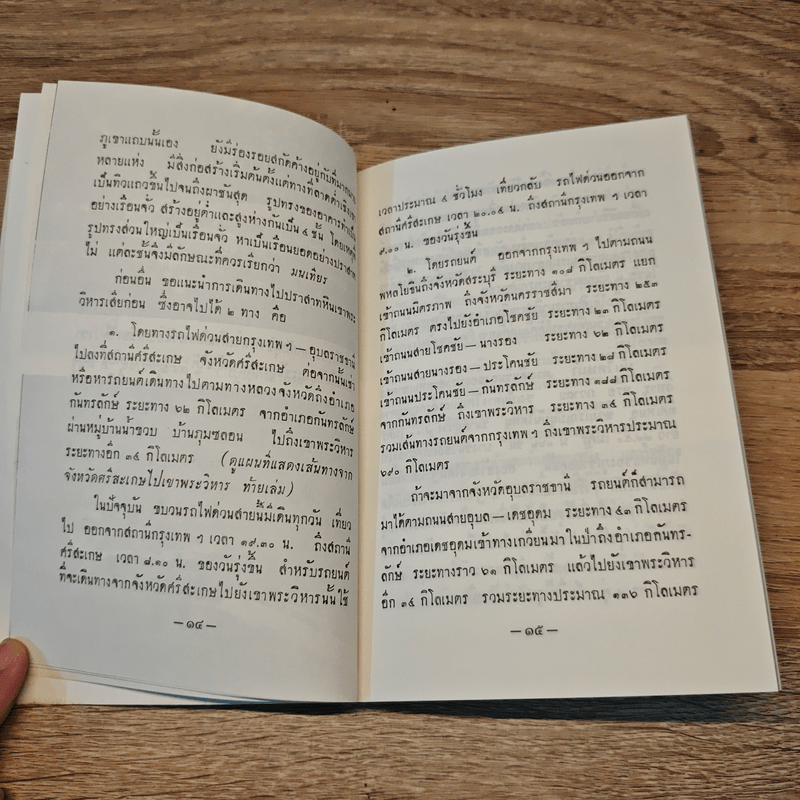 ภูเขาแถบนั้นเอง ยังมีร่องรอยสกัดค้างอยู่กับที่มากมาย
หลายแห่ง มีสิ่งก่อสร้างเริ่มต้นตั้งแต่ทางที่ลาดต่ำเชิงเขา
เป็นทิวแถวขึ้นไปจนถึงผาชันสุด รูปทรงของอาคารทำเป็น
อย่างเรือนจั่ว สร้างอยู่ต่ำและสูงห่างกันเป็น ๔ ชั้น โดยเหตุที่
รูปทรงส่วนใหญ่เป็นเรือนจั่ว หาเป็นเรือนยอดอย่างปราสาท
ไม่ แต่ละชั้นจึงมีลักษณะที่ควรเรียกว่า มนเทียร
ก่อนอื่น ขอแนะนำการเดินทางไปปราสาทหินเขาพระ
วิหารเสียก่อน ซึ่งอาจไปได้ ๒ ทาง คือ
๑. โดยทางรถไฟด่วนสายกรุงเทพฯ — อุบลราชธานี
ไปลงที่สถานีศรีสะเกษ จังหวัดศรีสะเกษ ต่อจากนั้นเช่า
หรือหารถยนต์เดินทางไปตามทางหลวงจังหวัดถึงอำเภอ
กันทรลักษ์ ระยะทาง ๖๒ กิโลเมตร จากอำเภอกันทรลักษ์
ผ่านหมู่บ้านน้ำขวบ บ้านภูมซลอน ไปถึงเขาพระวิหาร
ระยะทางอีก ๓๔ กิโลเมตร (ดูแผนที่แสดงเส้นทางจาก
จังหวัดศรีสะเกษไปเขาพระวิหาร ท้ายเล่ม)
ในปัจจุบัน ขบวนรถไฟด่วนสายนี้มีเดินทุกวัน เที่ยว
ไป ออกจากสถานีกรุงเทพ ฯ เวลา ๑๙.๓๐ น. ถึงสถานี
ศรีสะเกษ เวลา ๘.๑๐ น. ของวันรุ่งขึ้น สำหรับรถยนต์
ที่จะเดินทางจากจังหวัดศรีสะเกษไปยังเขาพระวิหารนั้นใช้
— ๑๔ —
เวลาประมาณ ๔ ชั่วโมง เที่ยวกลับ รถไฟด่วนออกจาก
สถานีศรีสะเกษ เวลา ๒๐.๐๔ น. ถึงสถานีกรุงเทพ ฯ เวลา
๙.๑๐ น. ของวันรุ่งขึ้น
๒. โดยรถยนต์ ออกจากกรุงเทพ ฯ ไปตามถนน
พหลโยธินถึงจังหวัดสระบุรี ระยะทาง ๑๐๘ กิโลเมตร แยก
เข้าถนนมิตรภาพ ถึงจังหวัดนครราชสีมา ระยะทาง ๒๕๓
กิโลเมตร ตรงไปยังอำเภอโชคชัย ระยะทาง ๒๓ กิโลเมตร
เข้าถนนสายโชคชัย — นางรอง ระยะทาง ๖๒ กิโลเมตร
เข้าถนนสายนางรอง — ประโคนชัย ระยะทาง ๒๘ กิโลเมตร
เข้าถนนประโคนชัย — กันทรลักษ์ ระยะทาง ๑๘๘ กิโลเมตร
จากกันทรลักษ์ ถึงเขาพระวิหาร ระยะทาง ๓๔ กิโลเมตร
รวมเส้นทางรถยนต์จากกรุงเทพ ฯ ถึงเขาพระวิหารประมาณ
๖๙๐ กิโลเมตร
ถ้าจะมาจากจังหวัดอุบลราชธานี รถยนต์ก็สามารถ
มาได้ตามถนนสายอุบล — เดชอุดม ระยะทาง ๔๓ กิโลเมตร
จากอำเภอเดชอุดมเข้าทางเกวียนมาในป่าถึงอำเภอกันทร-
ลักษ์ ระยะทางราว ๖๑ กิโลเมตร แล้วไปยังเขาพระวิหาร
อีก ๓๔ กิโลเมตร รวมระยะทางประมาณ ๑๓๖ กิโลเมตร
— ๑๕ —